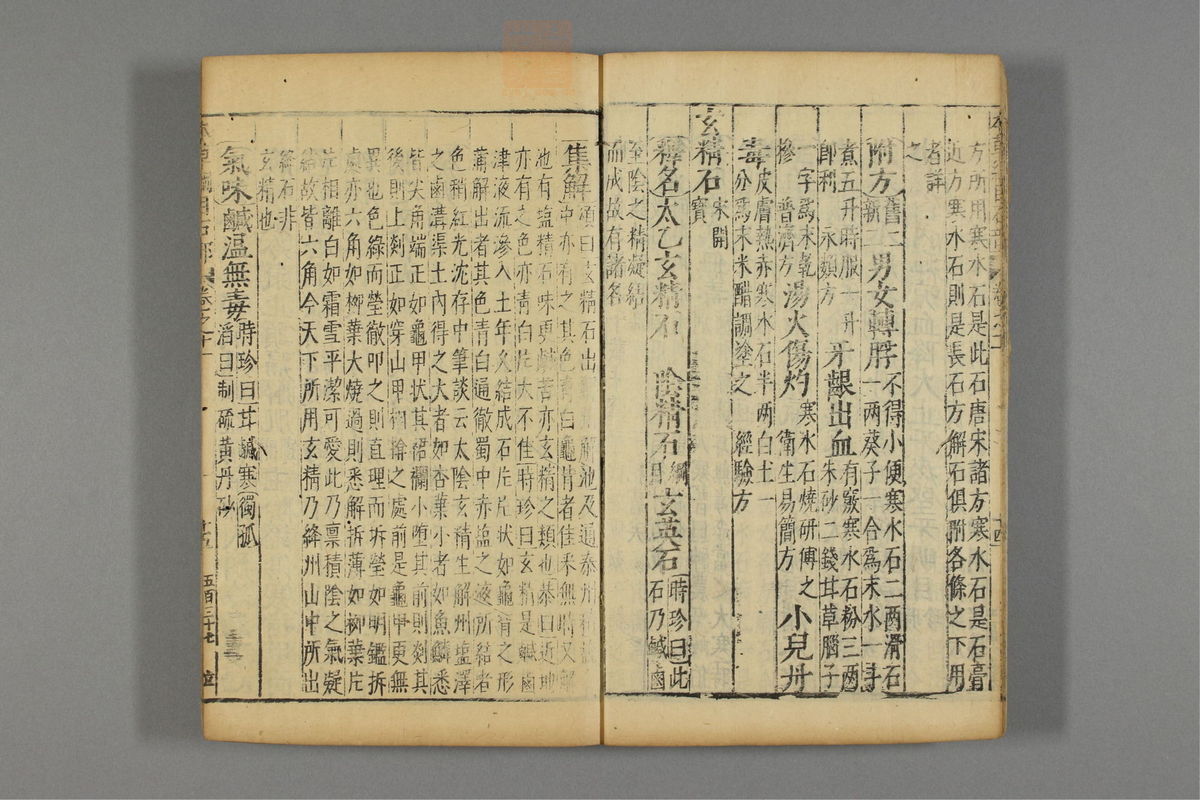 方所用寒水石是此石唐宋諸方寒水石是石膏
近方寒水石則是長石方解石俱附各條之下用
者詳
之
附方舊二新三男女轉脬不得小便寒水石二兩滑石
一兩葵子一合為末水一斗
煮五升時服一升
即利 永類方 牙齦出血有竅寒水石粉三兩
朱砂二錢甘草腦子
一字為末乾
摻 普濟方 湯火傷灼寒水石燒研傅之
衛生易簡方 小兒丹
毒皮膚熱赤寒水石半兩白土一
分為末米醋調塗之 經驗方
玄精石宋開寶
釋名太乙玄精石 陰精石綱目玄英石時珍曰此
石乃鹹鹵
至陰之精凝結
而成故有諸名
集解頌曰玄精石出解池及通泰州
中亦有之其色青白龜背者佳采無時又解
池有塩精石味更鹹苦亦玄精之類也恭曰近地
亦有之色亦青白片大不佳時珍曰玄精是鹹鹵
津液流滲入土年久結成石片片狀如龜背之形
蒲解出者其色青白通徹蜀中赤塩之液所結者
色稍紅光沈存中筆談云太陰玄精生解州塩澤
之鹵溝渠土內得之大者如杏葉小者如魚鱗悉
皆尖角端正如龜甲狀其裙襴小墮其前則剡其
後則上剡正如穿山甲相掩之處前是龜甲更無
異也色綠而瑩徹叩之則直理而拆瑩如明鑑拆
處亦六角如柳葉大燒過則悉解拆薄如柳葉片
片相離白如霜雪平潔可愛此乃稟積陰之氣凝
結故皆六角今天下所用玄精乃絳州山中所出
絳石非
玄精也
氣味鹹溫無毒時珍曰甘鹹寒獨孤
滔曰制硫黃丹砂
五百三十七